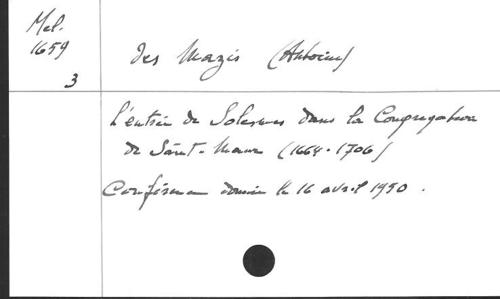 Mel.
1659
3
des Mazis (Antoine)
L'entrée de Solesmes dans la Congrégation
de Saint-Maur (1664-1706)
Conférence donnée le 16 avril 1950.